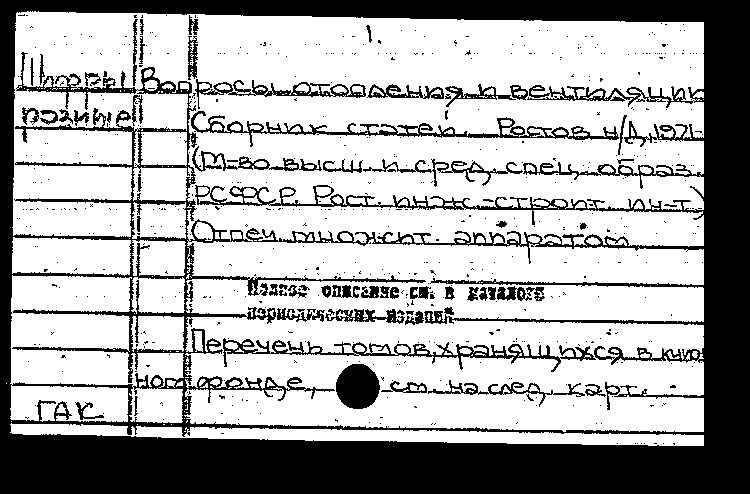 1.
Шифры Вопросы отопления и вентиляции
разные
Сборник статей. Ростов н/Д, 1971-
(М-во высш. и сред. спец. образ.
РСФСР. Рост. инж.-строит. ин-т)
Отпеч. множит. аппаратом.
Полное описание см. в каталоге
периодических изданий
Перечень томов, хранящихся в книж
ном фонде, см. на след. карт.
ГАК